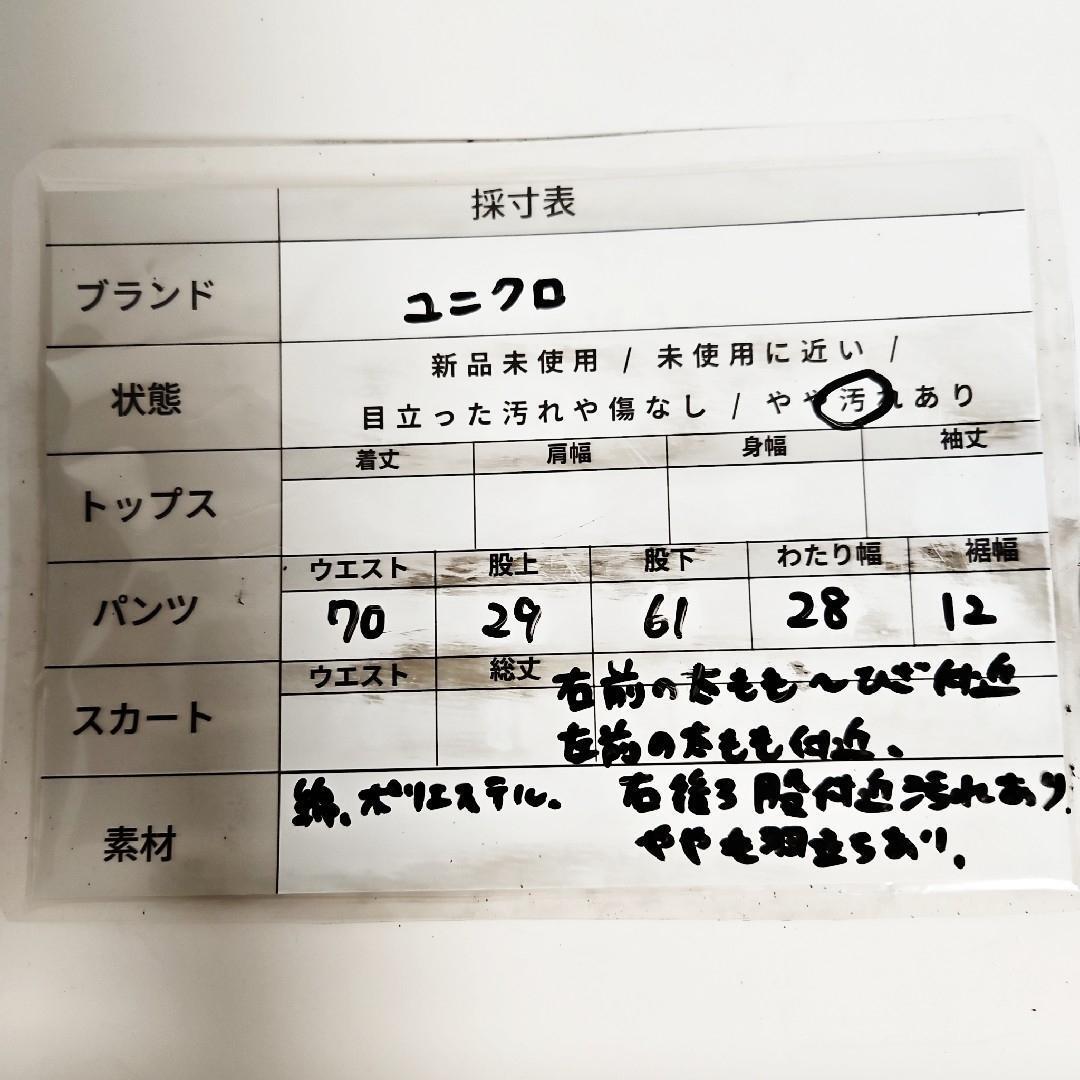 採寸表
ブランド ユニクロ
状態 新品未使用 / 未使用に近い /
目立った汚れや傷なし / やや汚れあり
着丈 肩幅 身幅 袖丈
トップス
ウエスト 股上 股下 わたり幅 裾幅
パンツ 70 29 61 28 12
ウエスト 総丈
右前の太もも〜ひざ付近
スカート
左前の太もも付近、
綿、ポリエステル、 右後ろ股付近汚れあり、
素材
やや毛羽立ちあり、